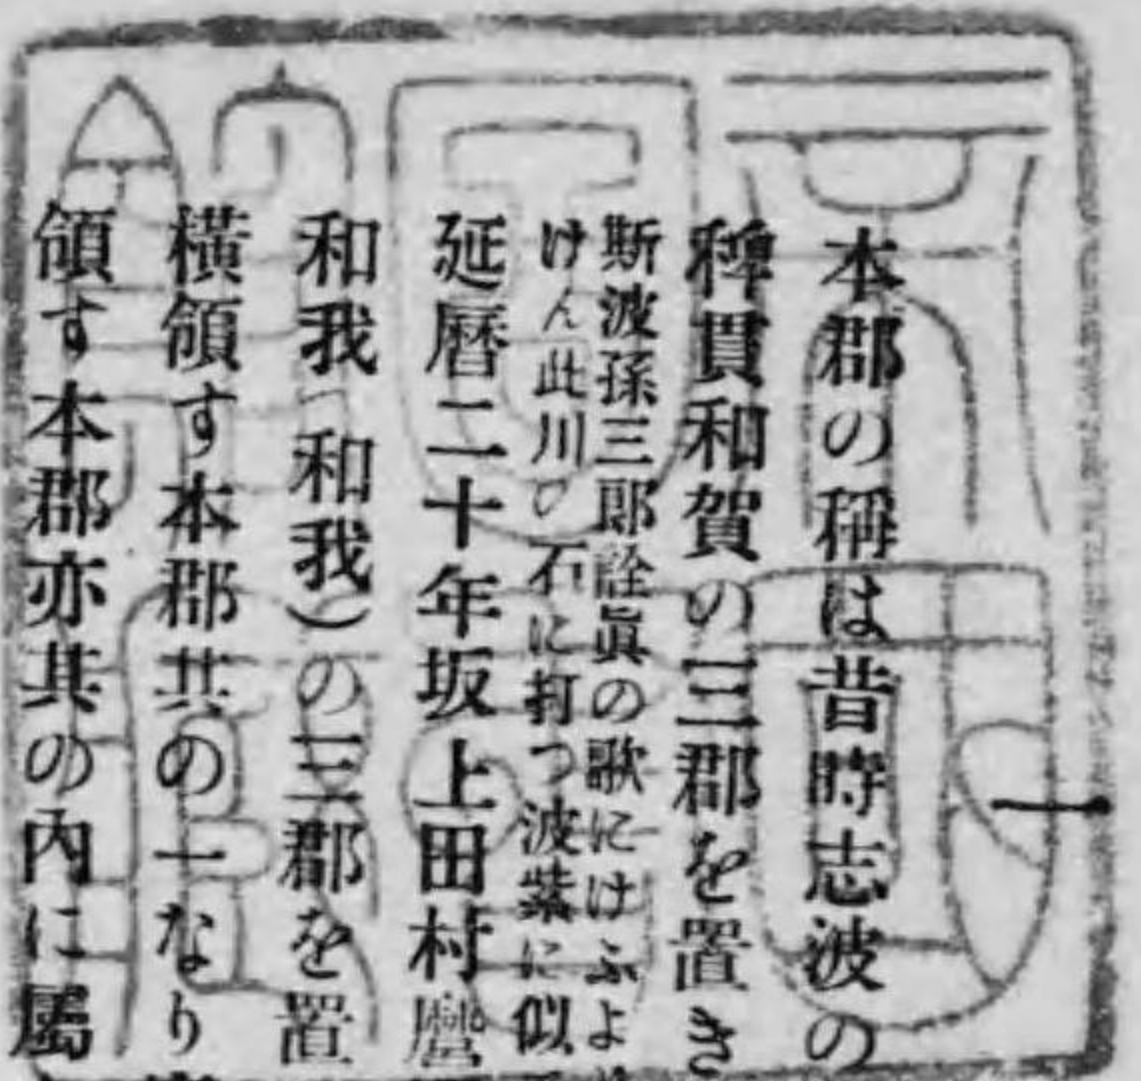 本郡の稱は昔時志波の
稗貫和賀の三郡を置き
斯波孫三郎詮眞の歌にけふよ
けん此川の石に打つ波紫に似
延曆二十年坂上田村麿
和我(和我)の三郡を置
橫領す本郡共の一なり
領す本郡亦其の內に屬